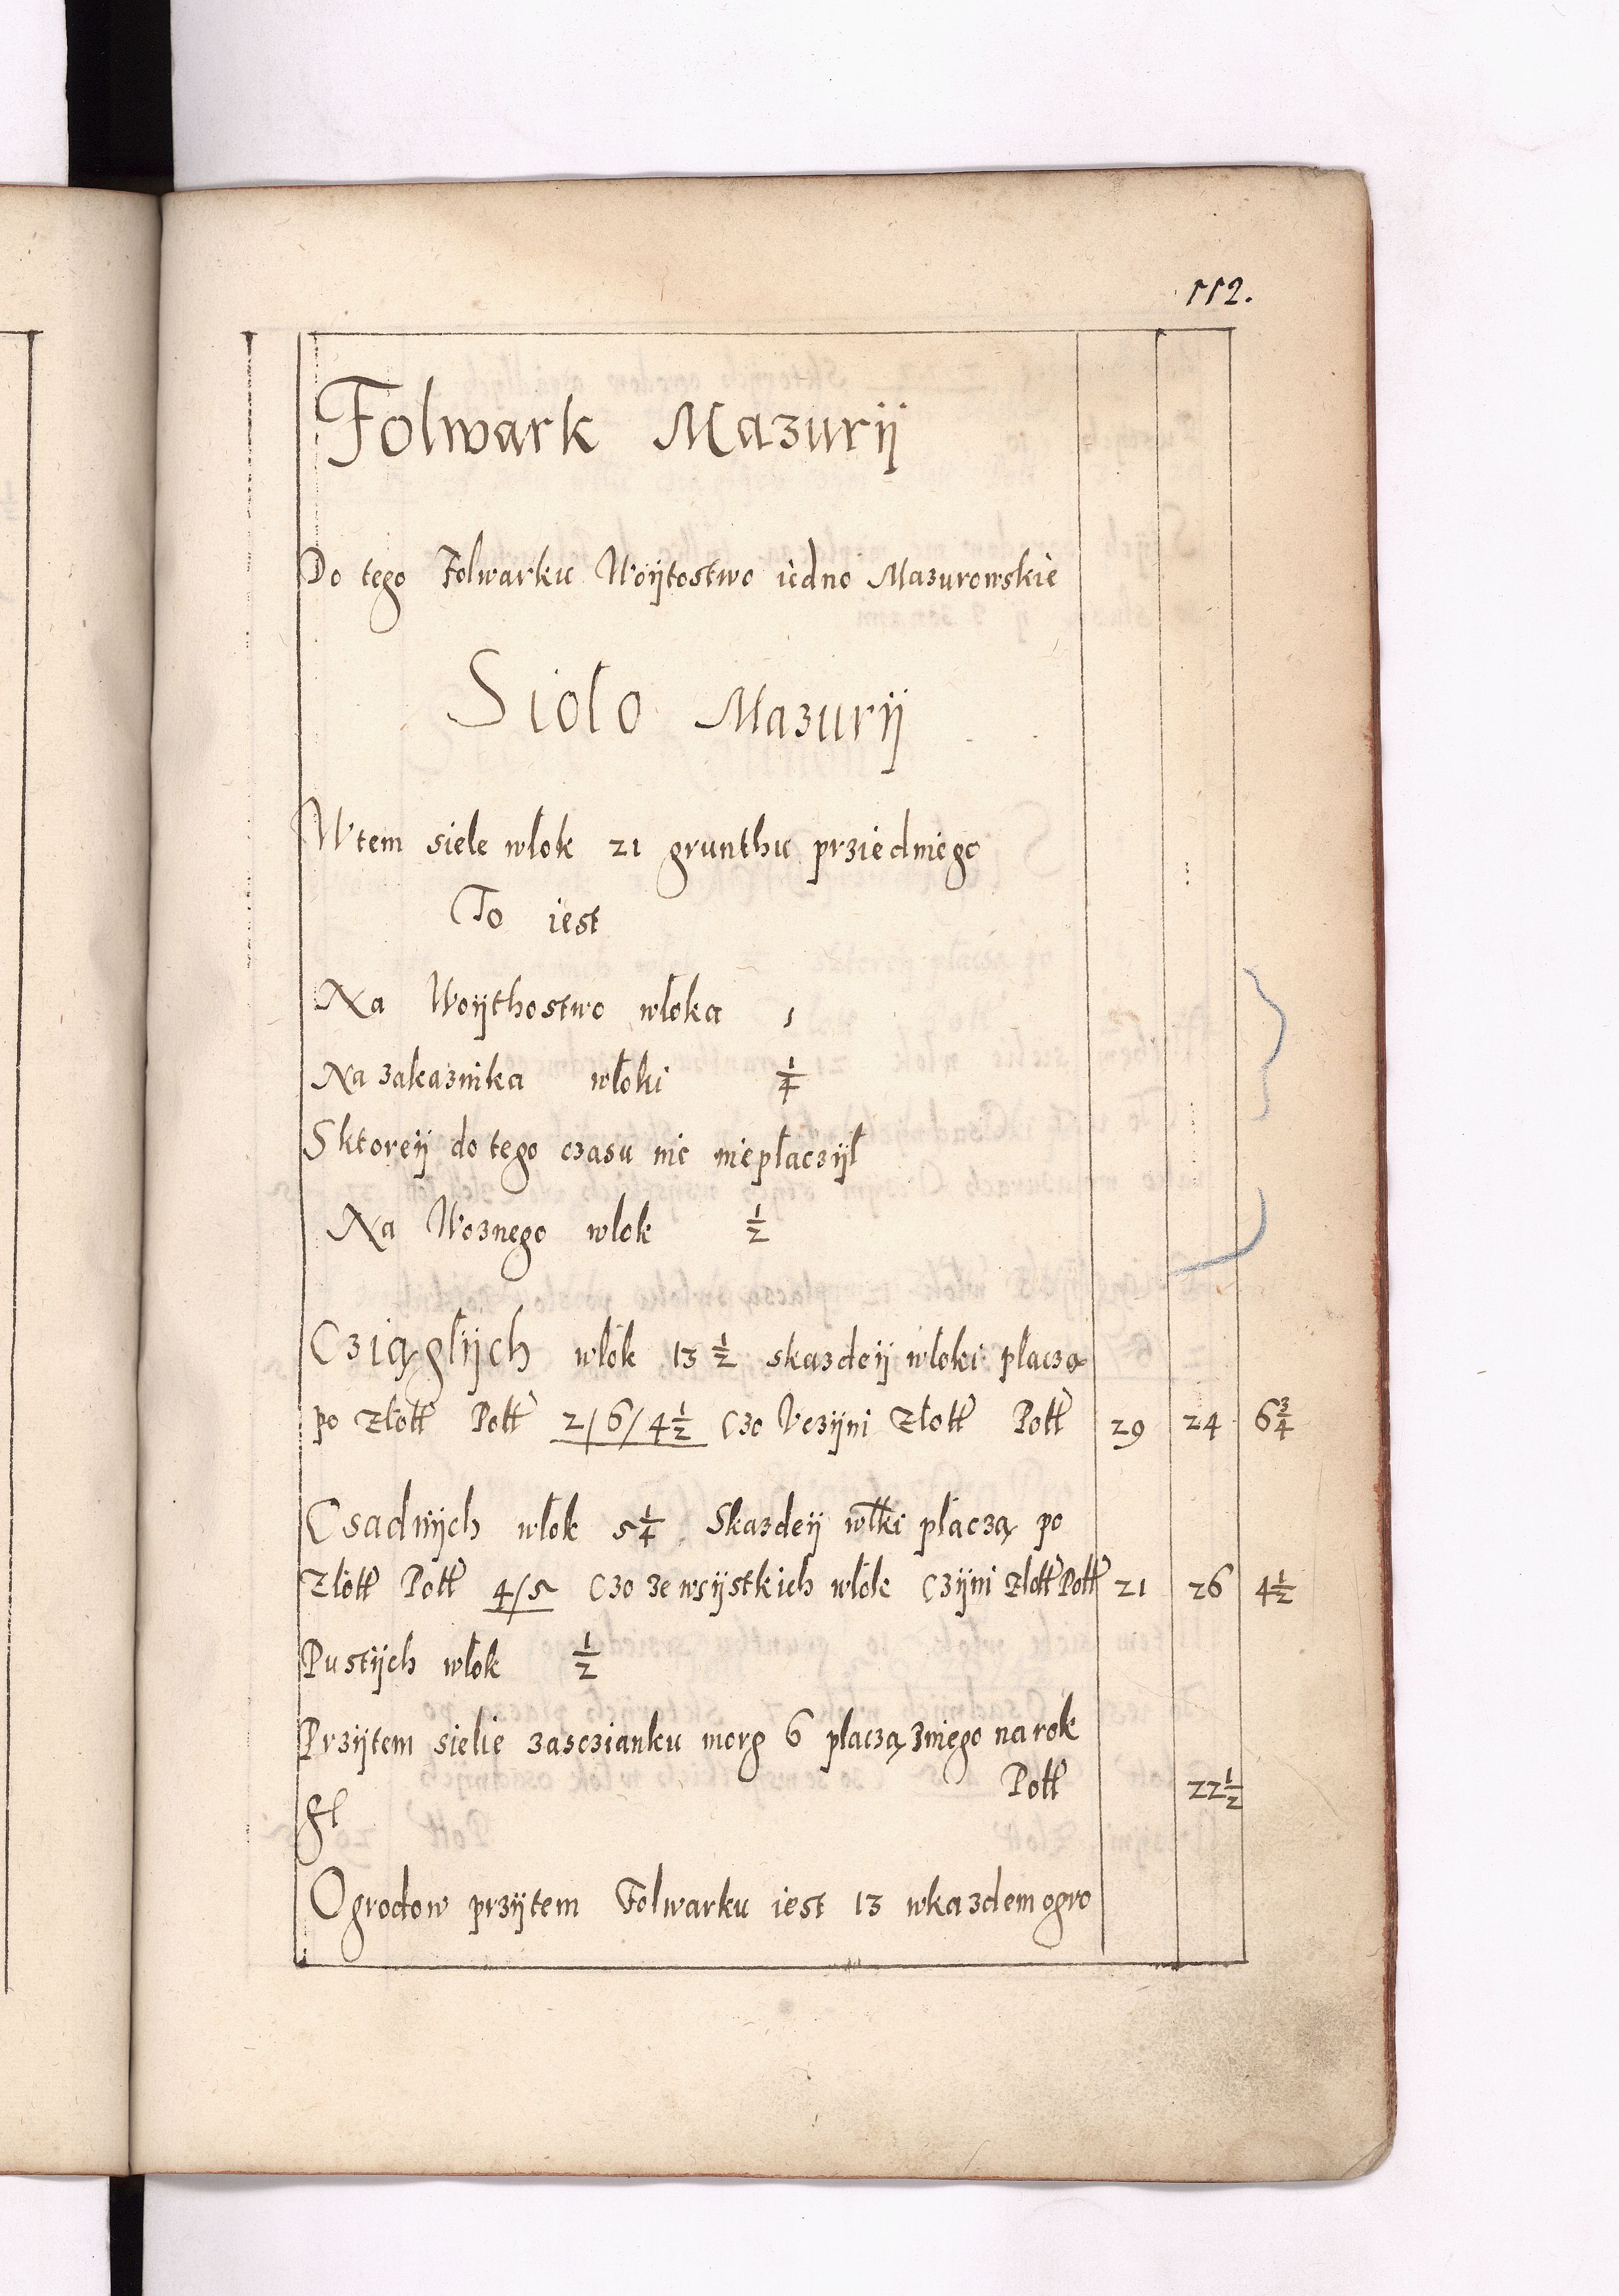 112.
Folwark Mazurÿ
Do tego Folwarku Woÿtostwo iedno Mazurowskie
Siolo Mazurÿ
Wtem siele wlok 21 grunthu prziedniego
To iest
Na Woÿthostwo wloka 1
Na zakaznika wloki 1/4
Sktoreÿ do tego czasu nic nieplaczÿl
Na Woznego wlok 1/2
Cziąglÿch wlok 13 1/2 skazdeÿ wloki placzą
po Złott Poll 2/6/4 1/2 Czo Vczÿni Złott Poll 29 24 6 3/4
Osadnÿch wlok 5 1/4 Skazdeÿ włki placzą po
Złott Poll 4/5 Czo ze wsÿstkich wlok Czÿni Złott Poll 21 26 4 1/2
Pustÿch wlok 1/2
Przÿtem sielie zasczianku morg 6 placzą zniego na rok
Poll 22 1/2
Ogrodow przÿtem Folwarku iest 13 wkazdem ogro